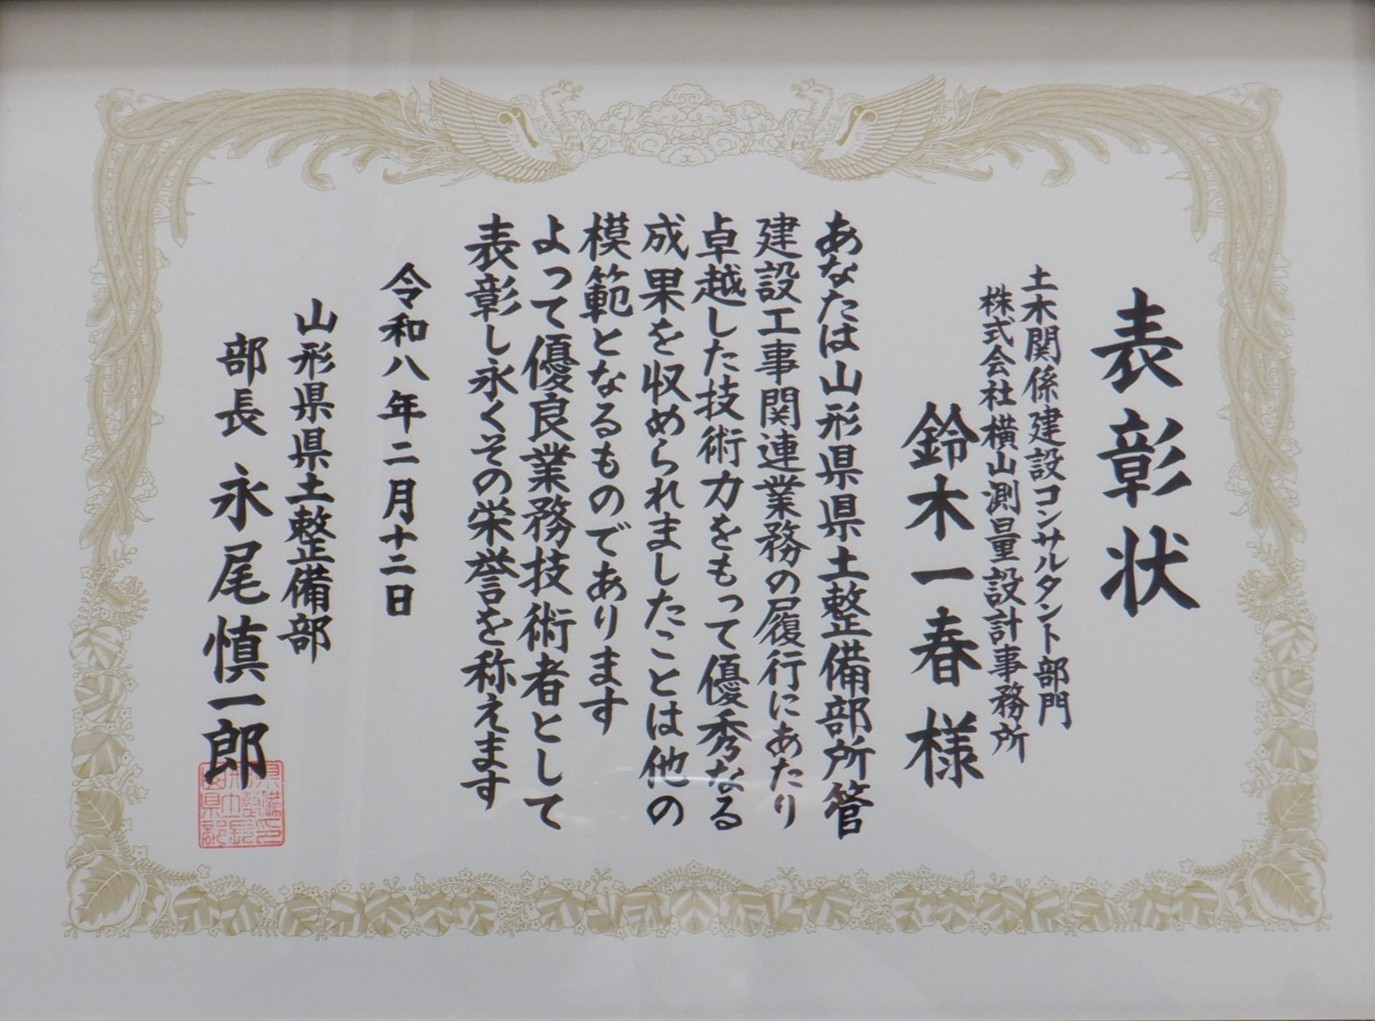 表彰状
土木関係建設コンサルタント部門
株式会社横山測量設計事務所
鈴木一春 様
あなたは山形県県土整備部所管
建設工事関連業務の履行にあたり
卓越した技術力をもって優秀なる
成果を収められましたことは他の
模範となるものであります
よって優良業務技術者として
表彰し永くその栄誉を称えます
令和八年二月十二日
山形県県土整備部
部長 永尾慎一郎